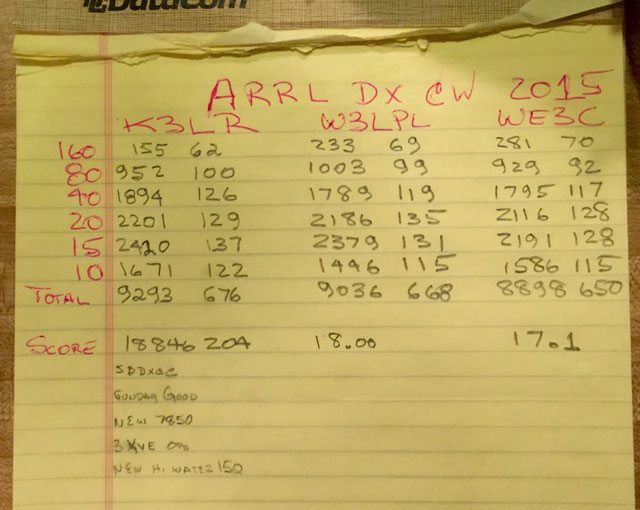 DataCom
ARRL DX CW 2015
K3LR W3LPL WE3C
160 155 62 233 69 281 70
80 952 100 1003 99 929 92
40 1894 126 1789 119 1795 117
20 2201 129 2186 135 2116 128
15 2420 137 2379 131 2191 128
10 1671 122 1446 115 1586 115
TOTAL 9293 676 9036 668 8898 650
SCORE 18846204 18.00 17.1
SUNDAY GOOD
NEW 7850
3 OPS
NEW HI WATER 150